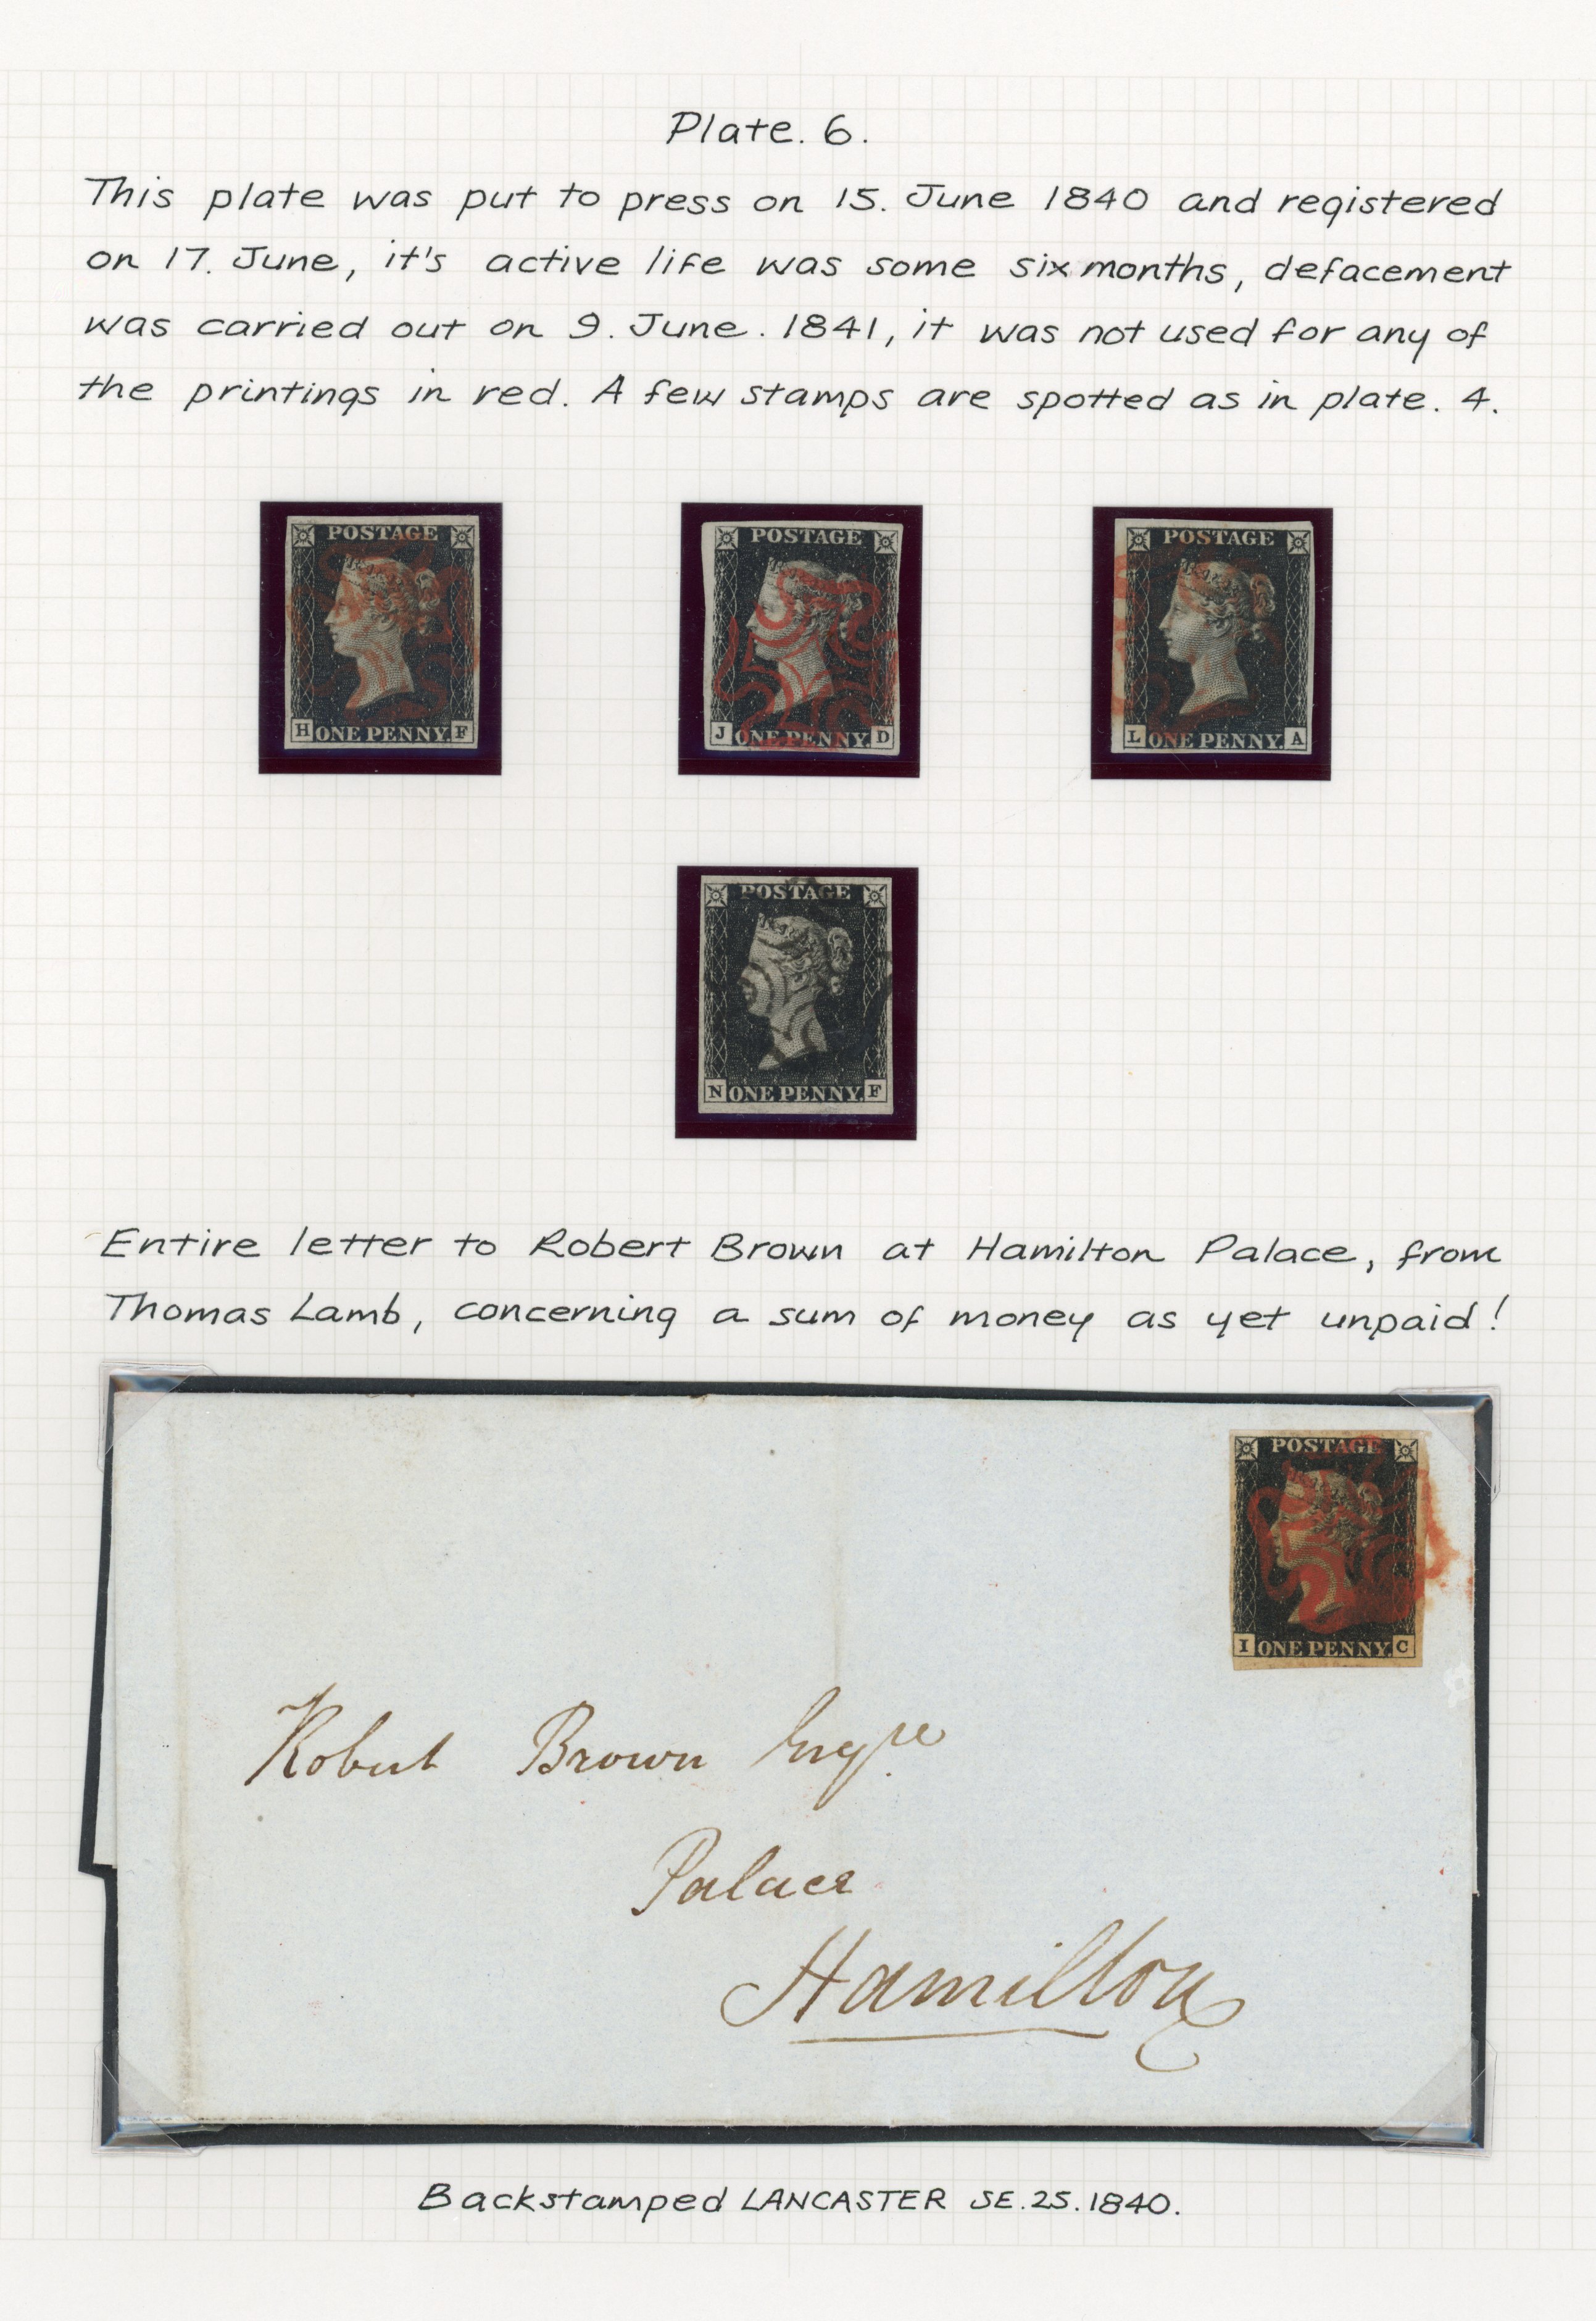 Plate. 6.
This plate was put to press on 15. June 1840 and registered
on 17. June, it's active life was some six months, defacement
was carried out on 9. June. 1841, it was not used for any of
the printings in red. A few stamps are spotted as in plate. 4.
POSTAGE
H ONE PENNY. F
POSTAGE
J ONE PENNY. D
POSTAGE
L ONE PENNY. A
POSTAGE
N ONE PENNY. F
Entire letter to Robert Brown at Hamilton Palace, from
Thomas Lamb, concerning a sum of money as yet unpaid!
POSTAGE
I ONE PENNY. C
Robert Brown Esqre
Palace
Hamilton
Backstamped LANCASTER SE.25.1840.